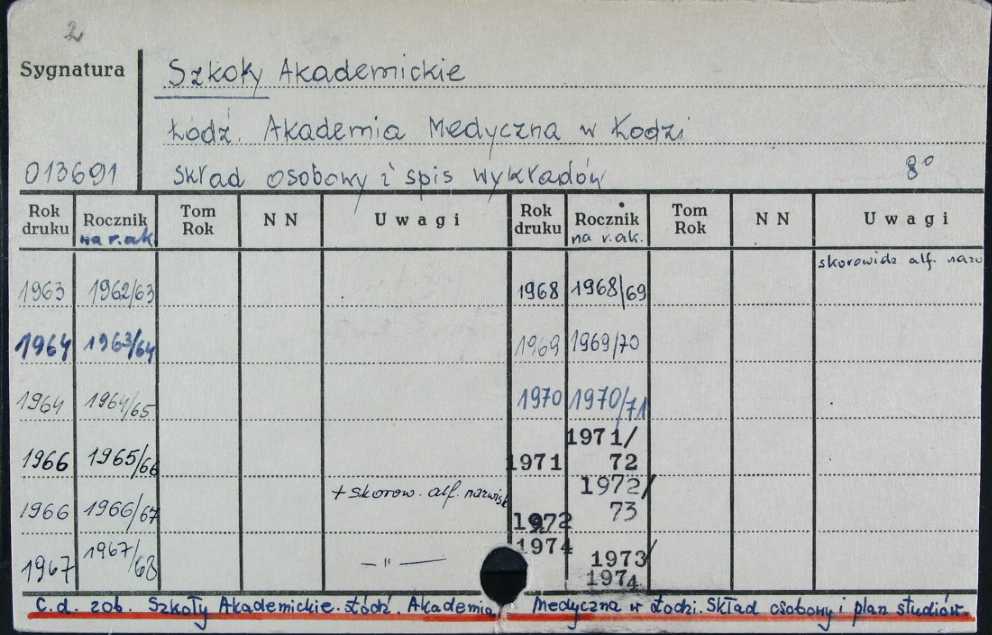 2
Sygnatura
Szkoły Akademickie
Łódź. Akademia Medyczna w Łodzi
013691 Skład osobowy i spis wykładów 8°
Rok druku Rocznik na r.ak. Tom Rok NN Uwagi Rok druku Rocznik na r.ak. Tom Rok NN Uwagi
skorowidz alf. nazw
1963 1962/63 1968 1968/69
1964 1963/64 1969 1969/70
1964 1964/65 1970 1970/71
1966 1965/66 1971 1971/72
1966 1966/67 + skorow. alf. nazwisk 1972 1972/73
1967 1967/68 —"— 1974 1973/1974
C.d. zob. Szkoły Akademickie. Łódź. Akademia Medyczna w Łodzi. Skład osobowy i plan studiów